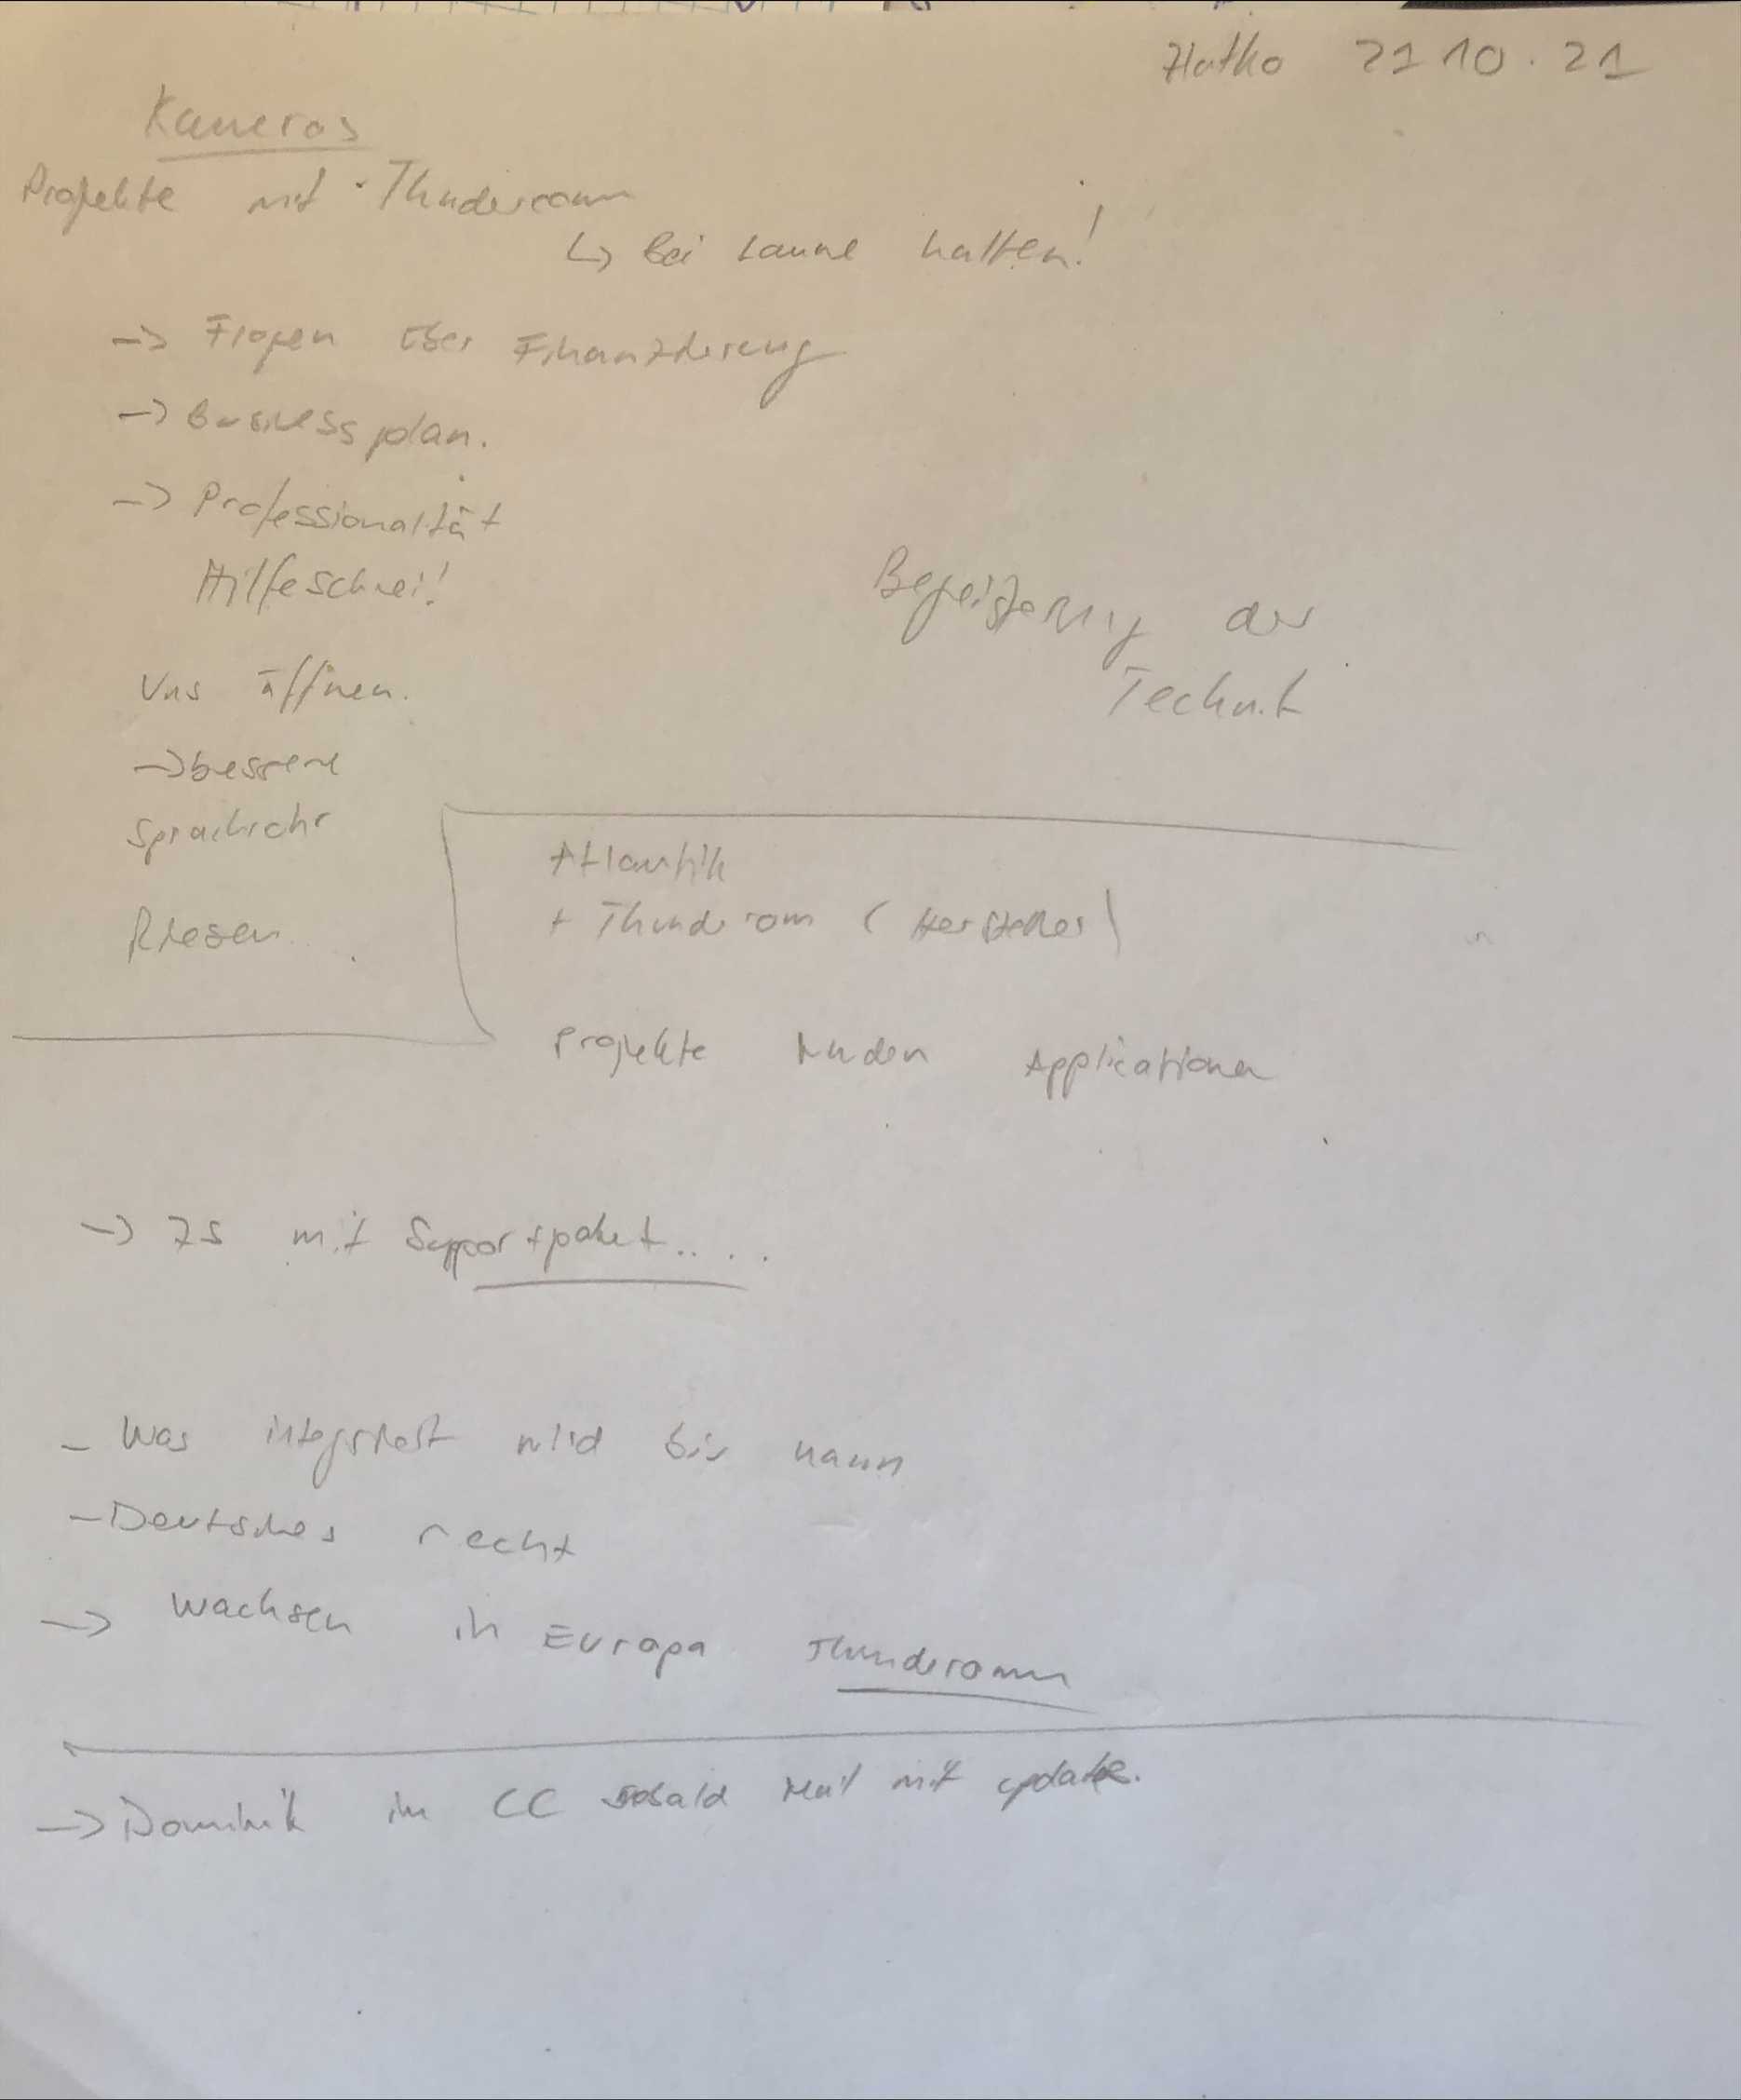 Zlatko 21 10. 21
Kameras
Projekte mit Thundercomm
↳ bei Laune halten!
-> Fragen über Finanzierung
-> Businessplan.
-> Professionalität
Hilfeschrei!
Begeisterung der
Technik
Uns öffnen.
-> bessere
Sprachrohr
Riesen
Atlantik
+ Thundercomm (Hersteller)
Projekte Kunden Applicationen
-> 75 mit Supportpaket....
- Was integriert wird bis wann
- Deutsches recht
-> Wachsen in Europa Thundercomm
-> Dominik in CC sobald Mail mit update.